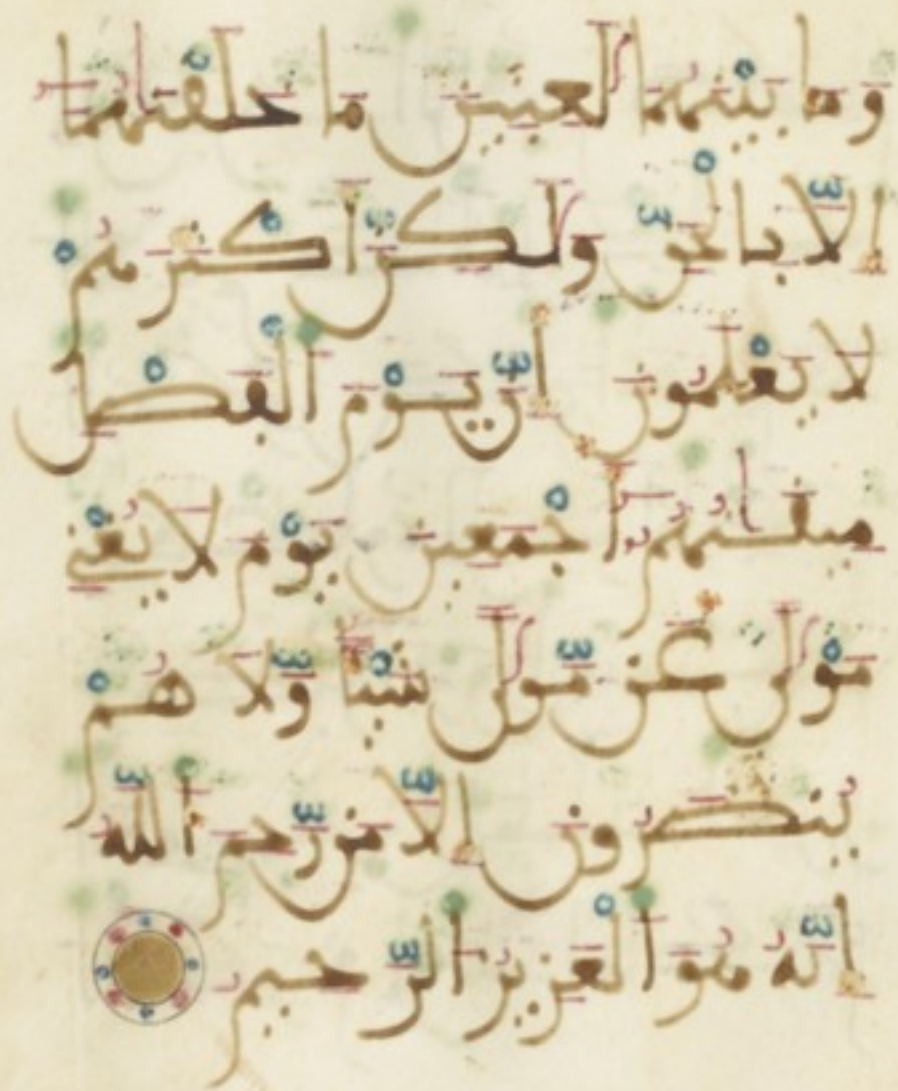 وَمَا بَيْنَهُمَا لَٰعِبِينَ مَا خَلَقْنَٰهُمَا
إِلَّا بِالْحَقِّ وَلَٰكِنَّ أَكْثَرَهُمْ
لَا يَعْلَمُونَ إِنَّ يَوْمَ الْفَصْلِ
مِيقَٰتُهُمْ أَجْمَعِينَ يَوْمَ لَا يُغْنِي
مَوْلًى عَن مَّوْلًى شَيْئًا وَلَا هُمْ
يُنصَرُونَ إِلَّا مَن رَّحِمَ اللَّهُ
إِنَّهُ هُوَ الْعَزِيزُ الرَّحِيمُ